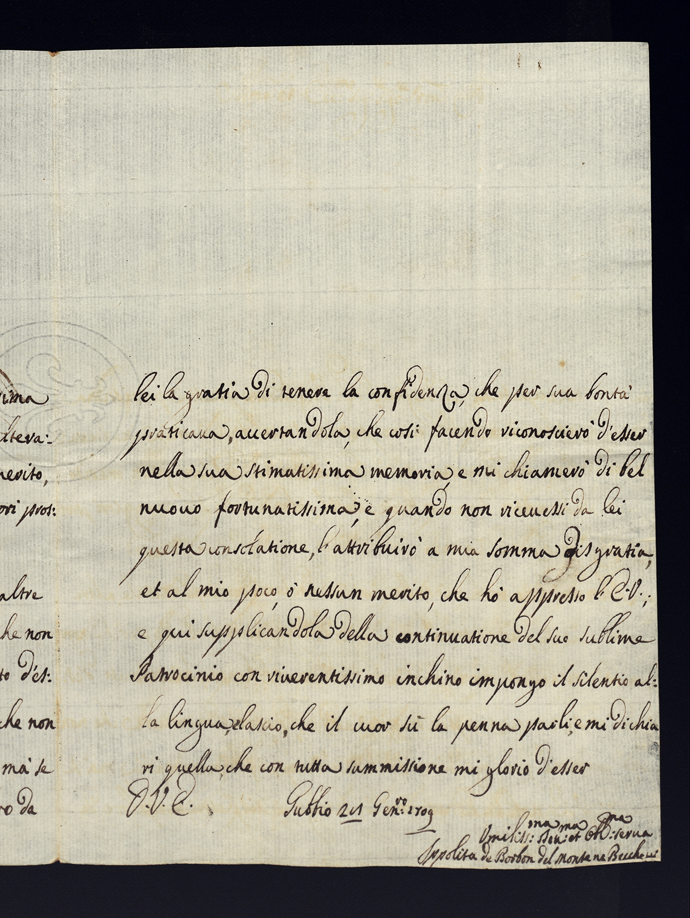 sima
ltera:
merito,
ori pros:
altre
he non
to d'es:
che non
ma se
ro da
lei la gratia di tenere la confidenza, che per sua bontà
praticaua, accertandola, che così facendo riconoscierò d'esser
nella sua stimatissima memoria, e mi chiamerò di bel
nuouo fortunatissima, e quando non riceuessi da lei
questa consolatione, l'attribuirò a mia somma disgratia,
et al mio poco, ò nessun merito, che hò appresso l'E.V.;
e qui supplicandola della continuatione del suo sublime
Patrocinio con riuerentissimo inchino impongo il silentio al:
la lingua, e lascio, che il cuor sù la penna parli, e mi dichia
ri quella, che con tutta summissione mi glorio d'esser
D.V.E.
Gubbio 21 Gen:ro 1709
Vmiliss:ma Deu:ma et Obb:ma serua
Ippolita de Borbon del Monte ne